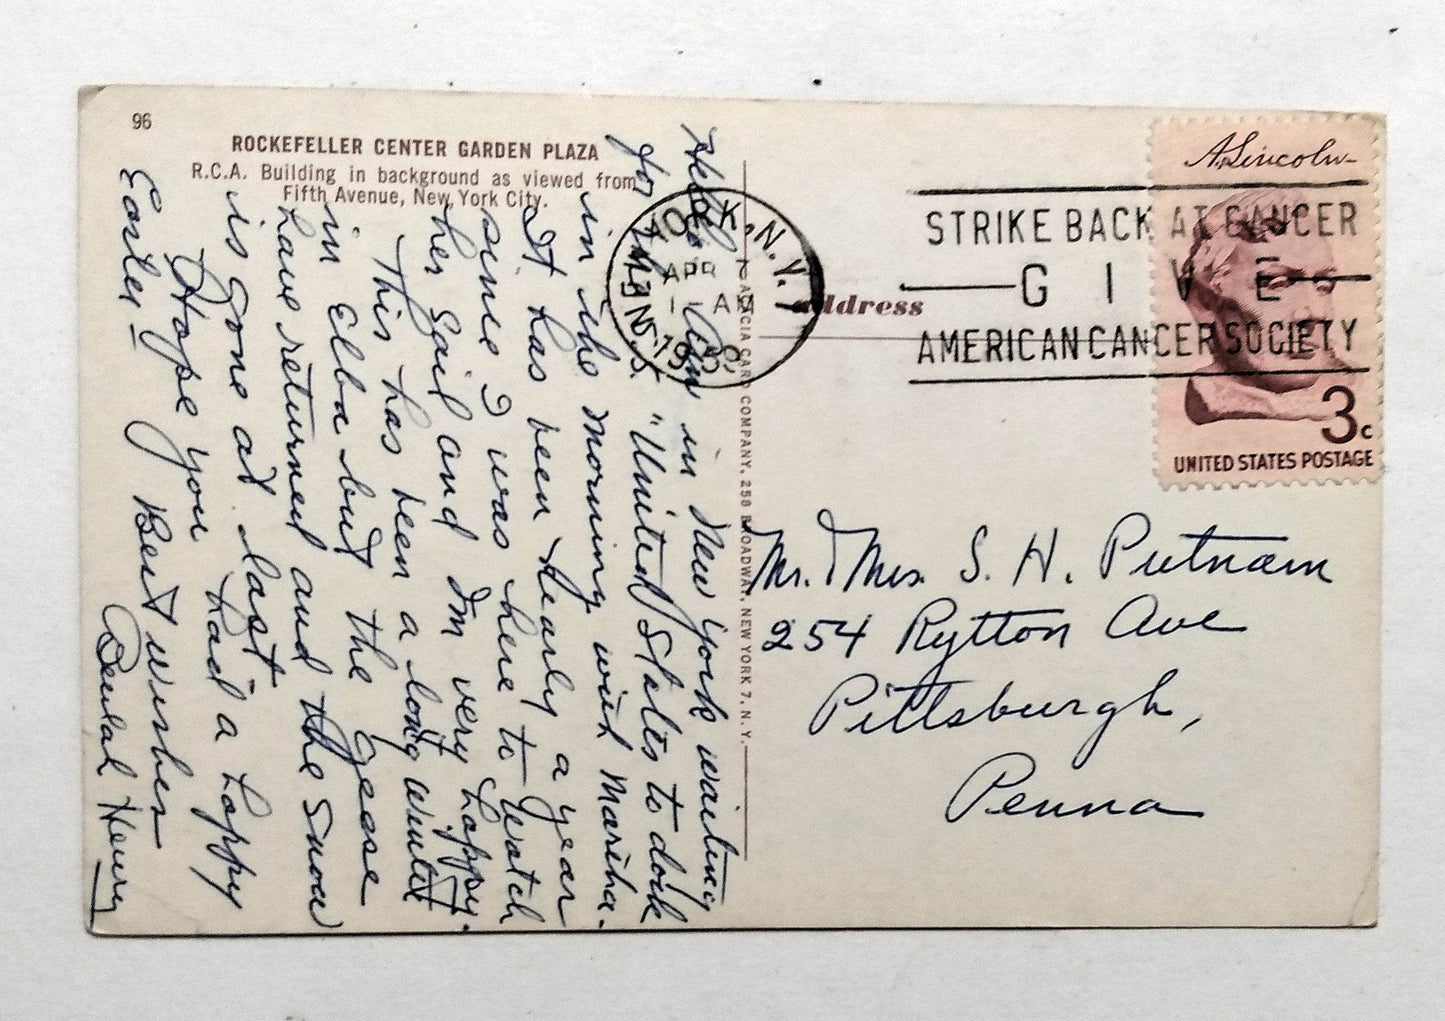 96
ROCKEFELLER CENTER GARDEN PLAZA
R.C.A. Building in background as viewed from
Fifth Avenue, New York City.
in New York waiting
for the S.S. "United States to dock
in the morning with Marsha.
It has been nearly a year
since I was here to watch
her sail and I'm very happy.
This has been a long winter
in Elba but the geese
have returned and the snow
is gone at last
Hope you had a happy
Easter - Best wishes
Beulah Henry
CARD COMPANY, 258 BROADWAY, NEW YORK 7, N.Y.
address
ORK, N.Y. 1
APR 7
1 AM
1958
STRIKE BACK AT CANCER
GIVE
AMERICAN CANCER SOCIETY
A. Lincoln
3c
UNITED STATES POSTAGE
Mr. & Mrs. S. H. Putnam
254 Rytton Ave
Pittsburgh,
Penna